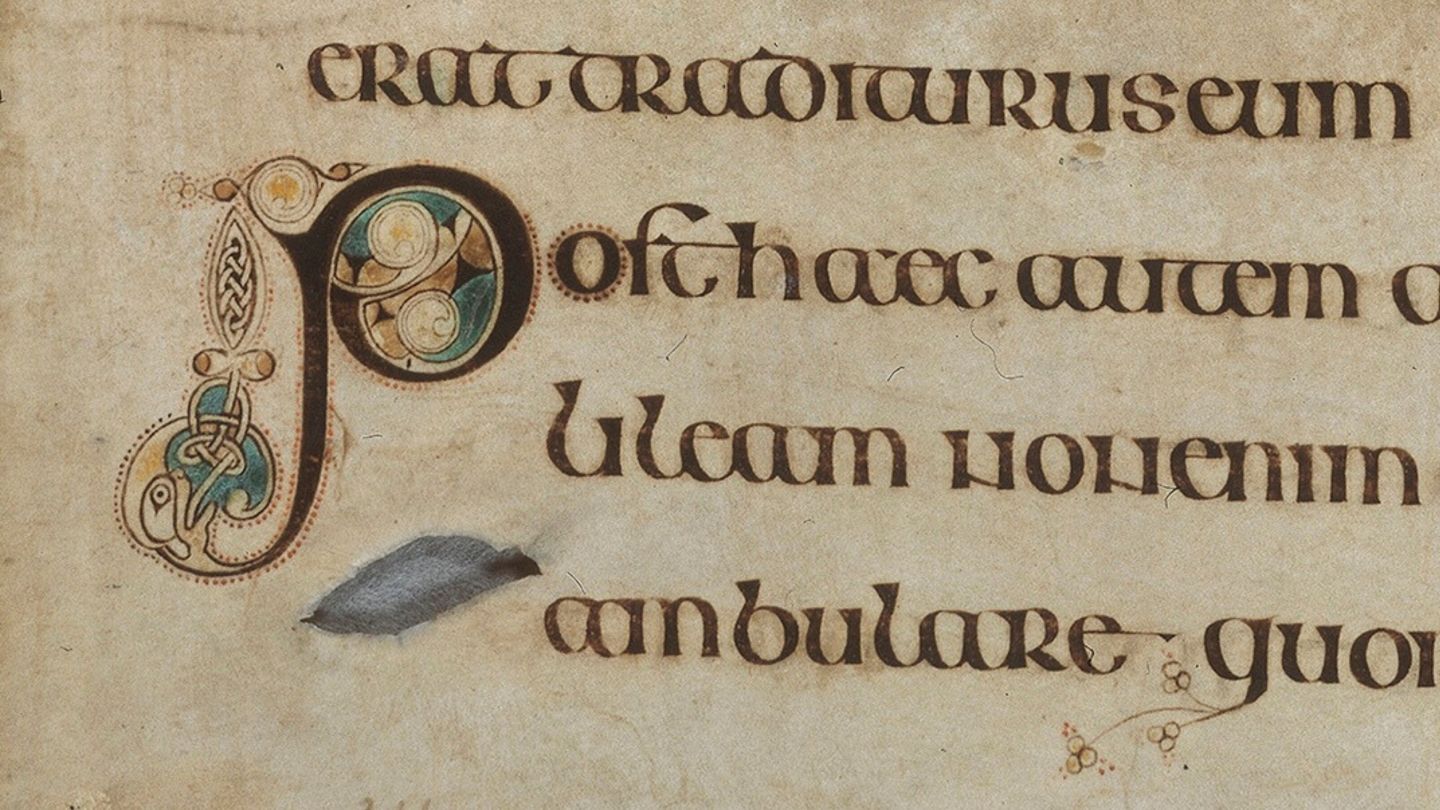 erat traditurus eum
Post haec autem
lileam non enim
ambulare quo